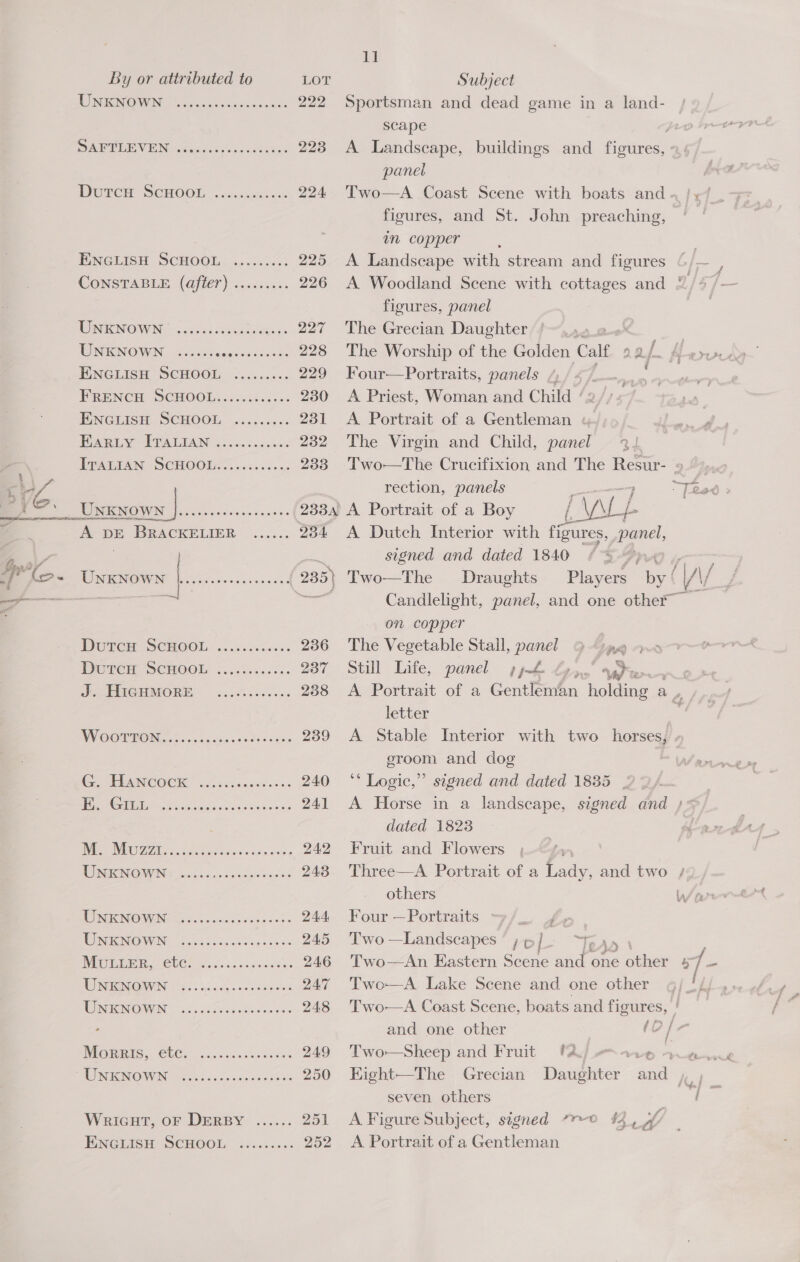 11
By or attributed to LOT Subject
UNKNOWN ..................... 222 Sportsman and dead game in a land-
scape
SAFTLEVEN .................. 223 A Landscape, buildings and figures,
panel
DUTCH SCHOOL ............ 224 Two—A Coast Scene with boats and
figures, and St. John preaching,
in copper
ENGLISH SCHOOL ......... 225 A Landscape with stream and figures
CONSTABLE (after) ......... 226 A Woodland Scene with cottages and
figures, panel
UNKNOWN ..................... 227 The Grecian Daughter
UNKNOWN ..................... 228 The Worship of the Golden Calf
ENGLISH SCHOOL ......... 229 Four—Portraits, panels
FRENCH SCHOOL............ 230 A Priest, Woman and Child
ENGLISH SCHOOL ......... 231 A Portrait of a Gentleman
EARLY ITALIAN ............ 232 The Virgin and Child, panel
ITALIAN SCHOOL............ 233 Two—The Crucifixion and The Resur-
rection, panels
UNKNOWN ..................... 233A A Portrait of a Boy
A DE BRACKELIER ...... 234 A Dutch Interior with figures, panel,
signed and dated 1840
UNKNOWN ..................... 235 Two—The Draughts Players by
Candlelight, panel, and one other
on copper
DUTCH SCHOOL ............ 236 The Vegetable Stall, panel
DUTCH SCHOOL ............ 237 Still Life, panel
J. HIGHMORE ............ 238 A Portrait of a Gentleman holding a
letter
WOOTTON..................... 239 A Stable Interior with two horses,
groom and dog
G. HANCOCK .................. 240 “Logic,” signed and dated 1835
E. GILL ........................ 241 A Horse in a landscape, signed and
dated 1823
M. MUZZI..................... 242 Fruit and Flowers
UNKNOWN ..................... 243 Three—A Portrait of a Lady, and two
others
UNKNOWN ..................... 244 Four—Portraits
UNKNOWN ..................... 245 Two—Landscapes
MULLER, etc. ............... 246 Two—An Eastern Scene and one other
UNKNOWN ..................... 247 Two—A Lake Scene and one other
UNKNOWN ..................... 248 Two—A Coast Scene, boats and figures,
and one other
MORRIS, etc. ............... 249 Two—Sheep and Fruit
UNKNOWN ..................... 250 Eight—The Grecian Daughter and
seven others
WRIGHT, OF DERBY ...... 251 A Figure Subject, signed
ENGLISH SCHOOL ......... 252 A Portrait of a Gentleman